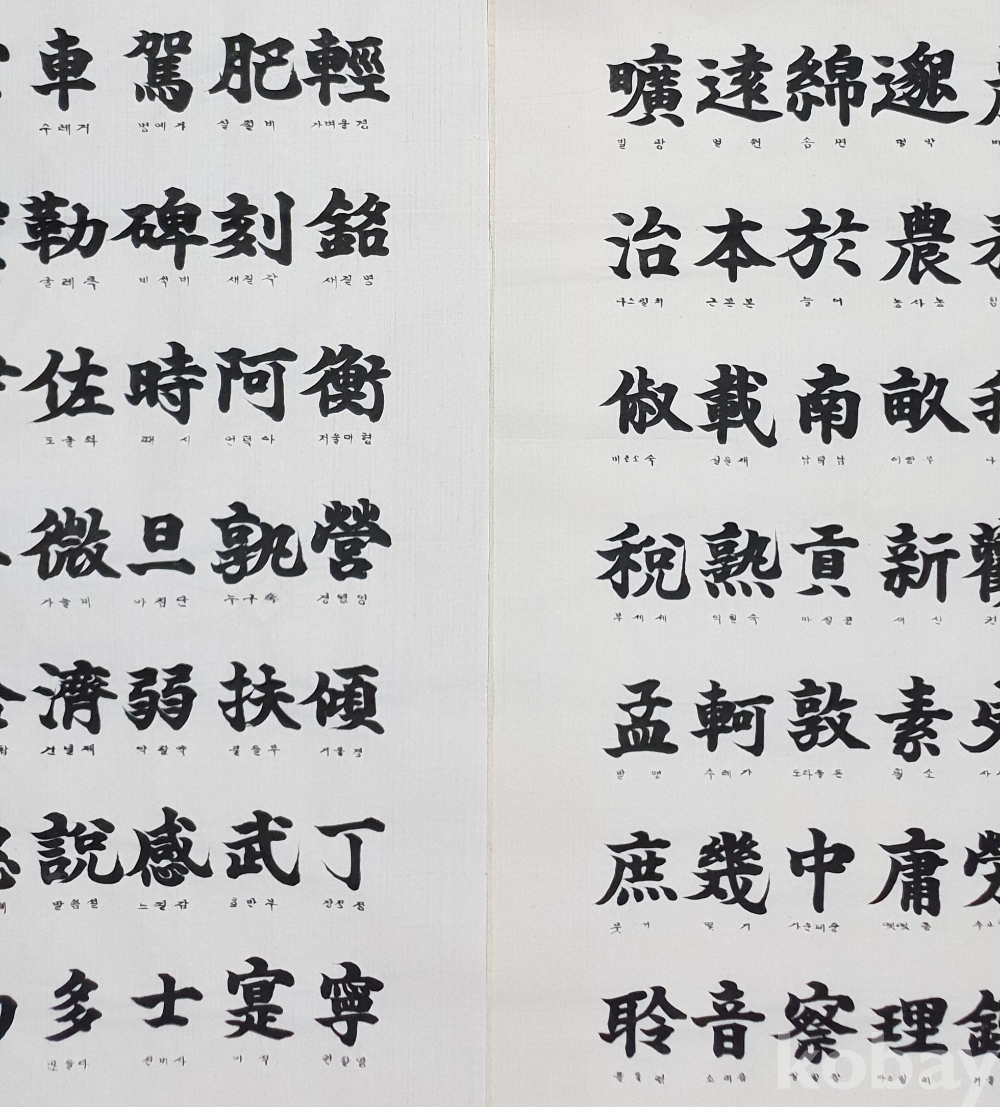 車 駕 肥 輕
수레거 멍에가 살찔비 가벼울경
勒 碑 刻 銘
굴레륵 비석비 새길각 새길명
佐 時 阿 衡
도울좌 때시 언덕아 저울대형
微 旦 孰 營
가늘미 아침단 누구숙 경영영
濟 弱 扶 傾
건널제 약할약 붙들부 기울경
說 感 武 丁
말씀설 느낄감 호반무 장정정
多 士 寔 寧
선비사 이식
曠 遠 綿 邈
빌광 멀원 솜면 멀막
治 本 於 農
다스릴치 근본본 늘어 농사농
俶 載 南 畝
비로소숙 실을재 남녁남 이랑무
稅 熟 貢 新
부세세 익힐숙 바칠공 새신
孟 軻 敦 素
맏맹 수레가 도타울돈 흴소
庶 幾 中 庸
뭇서 몇기 가운데중 떳떳용
聆 音 察 理
들을령 소리음
kobay